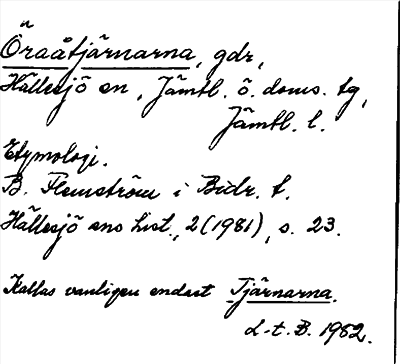 Öraåtjärnarna, gdr,
Hällesjö sn, Jämtl. ö. doms. tg,
Jämtl. l.
Etymologi.
B. Flemström i Bidr. t.
Hällesjö sns hist., 2 (1981), s. 23.
Kallas vanligen endast Tjärnarna.
L-t. B. 1982.